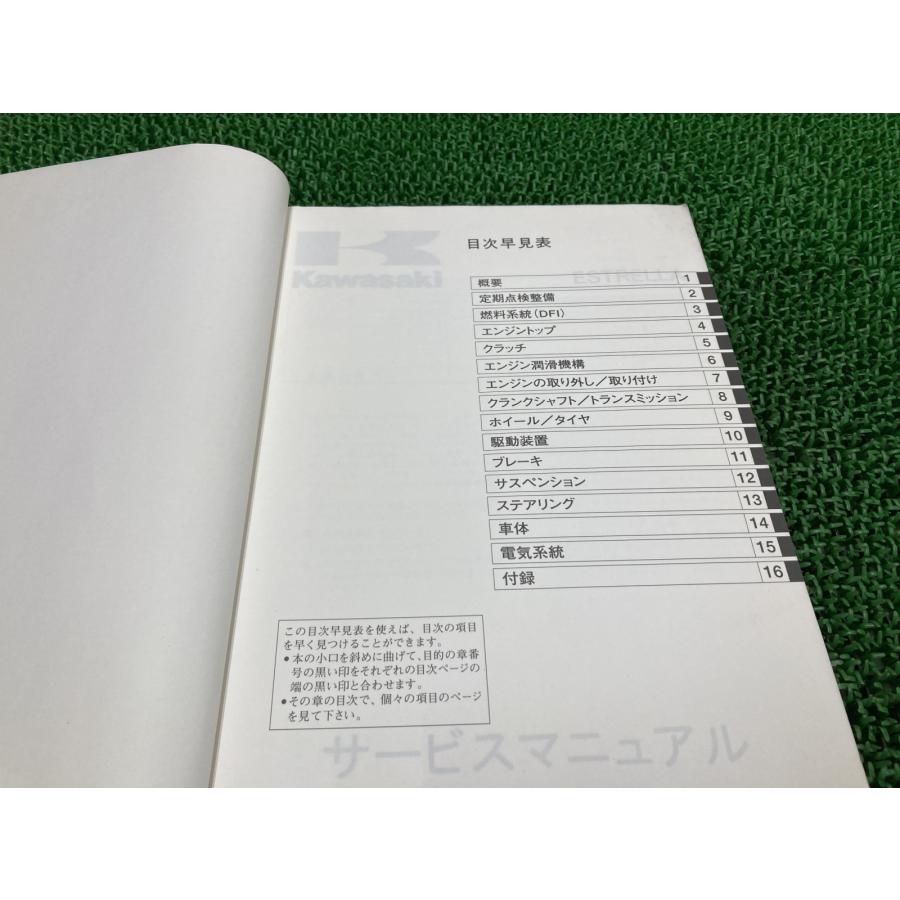 Kawasaki
目次早見表
ESTRELL
概要 1
定期点検整備 2
燃料系統(DFI) 3
エンジントップ 4
クラッチ 5
エンジン潤滑機構 6
エンジンの取り外し／取り付け 7
クランクシャフト／トランスミッション 8
ホイール／タイヤ 9
駆動装置 10
ブレーキ 11
サスペンション 12
ステアリング 13
車体 14
電気系統 15
付録 16
この目次早見表を使えば、目次の項目
を早く見つけることができます。
●本の小口を斜めに曲げて、目的の章番
号の黒い印をそれぞれの目次ページの
端の黒い印と合わせます。
●その章の目次で、個々の項目のページ
を見て下さい。
サービスマニュアル